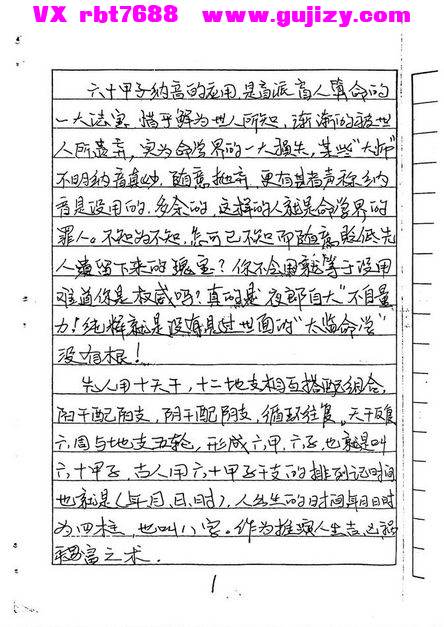 VX rbt7688 www.gujizy.com
六十甲子纳音的应用,是盲派高人算命的
一大法宝 惜乎鲜为世人所知,渐渐的被世
人所丢弃,实为命学界的一大损失,某些"大师"
不明纳音真妙,随意抛弃,更有甚者声称纳
音是没用的,多余的,这样的人就是命学界的
罪人。不知为不知,怎可己不知而随意贬低先
人遗留下来的瑰宝?你不会用就等于没用
难道你是权威吗?真的是"夜郎自大"不自量
力!纯粹就是没有见过世面的"太监命学"
没有根!
先人用十天干,十二地支相互搭配组合,
阳干配阳支,阴干配阴支,循环往复。天干反复
六周与地支五轮,形成六甲,六子,也就是叫
六十甲子,古人用六十甲子干支的排列记时间
也就是(年、月、日、时),人出生的时间年月日时
为四柱,也叫八字。作为推演人生吉凶祸
福之术.
1